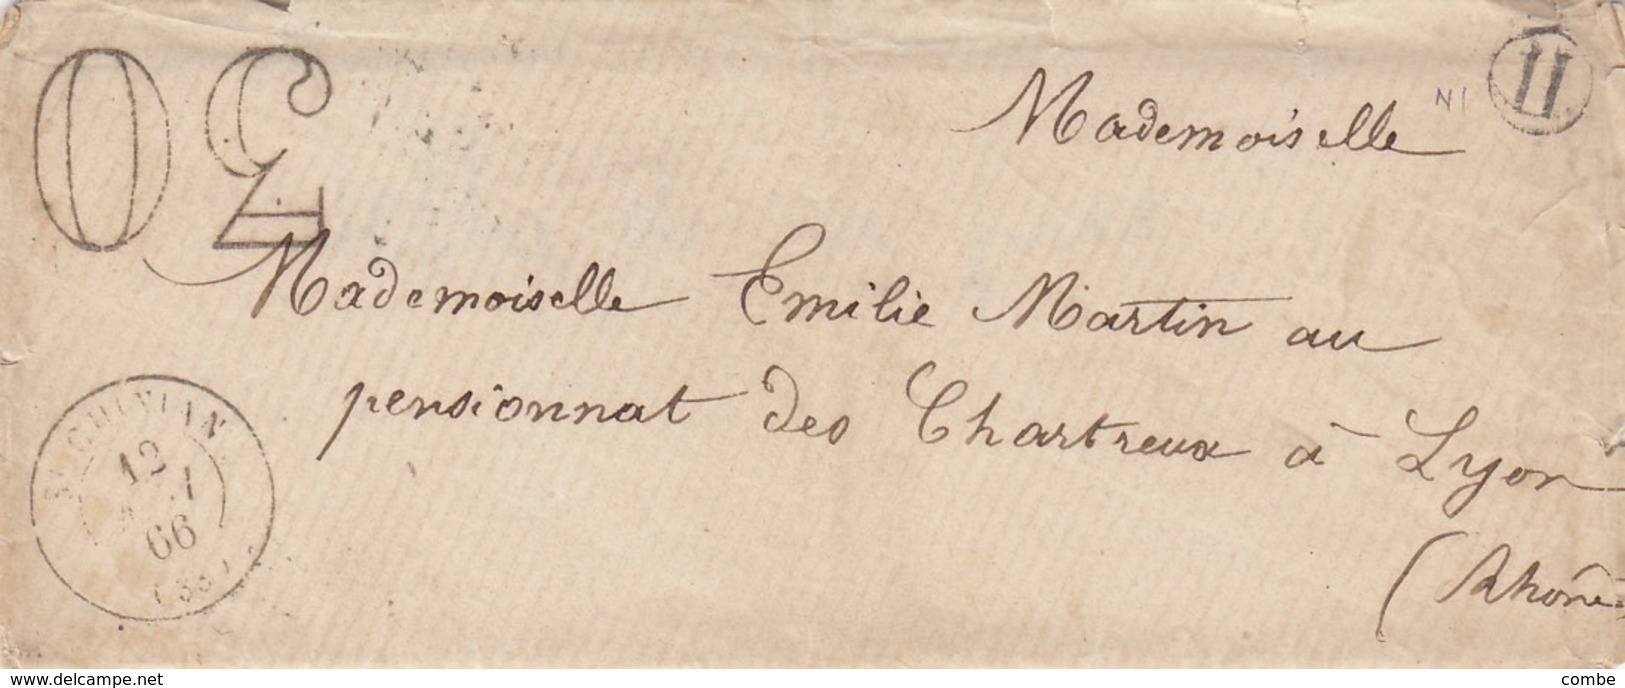 30
H
N I
Mademoiselle
Mademoiselle Emilie Martin au
pensionnat des Chartreux à Lyon
(Rhône)
12
66
www.delcampe.net
combe